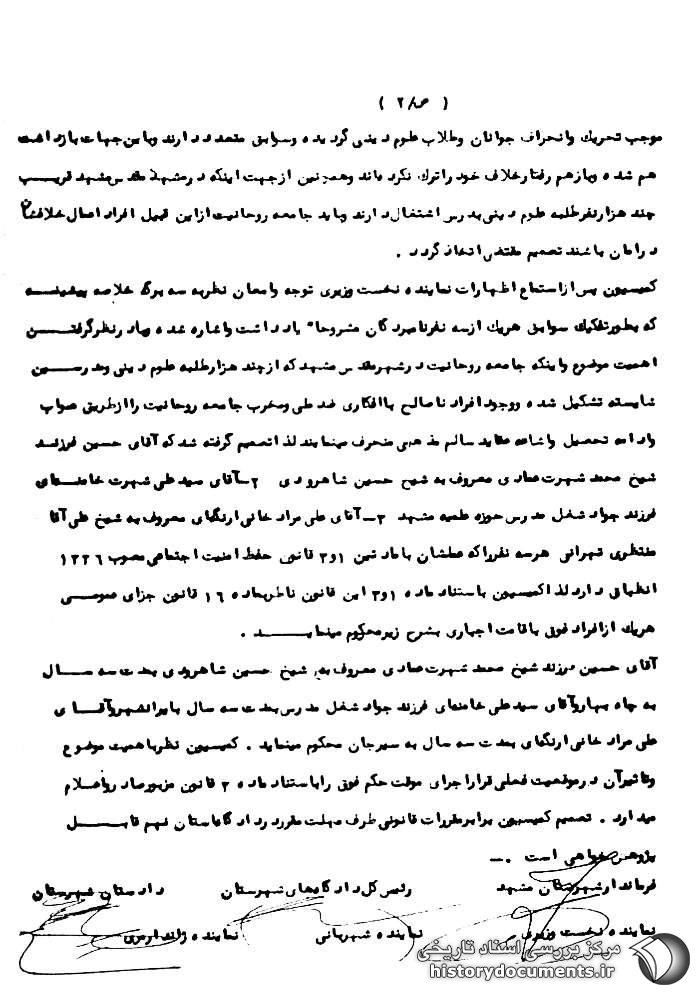 ( ص/۲ )
موجب تحریک وانحراف جوانان وطلاب علوم دینی گردیده وسوابق متعدد دارند وباین جهات بازداشت
هم شده وبازهم رفتارخلاف خود راترک نکرده اند وهمچنین ازجهت اینکه درمشهد مقدس مشهد قریب
چند هزارنفرطلبه علوم دینی بدرس اشتغال دارند وباید جامعه روحانیت ازاین قبیل افراد اعمال خلافشان
درامان باشند تصمیم مقتضی اتخاذ گردد .
کمیسیون پس ازاستماع اظهارات نماینده نخست وزیری توجه وامعان نظربه سه برگ خلاصه پیشینه
که بطورتفکیک سوابق هریک ازسه نفرنامبردگان مشروحا" یادداشت واشاره شده وبادرنظرگرفتن
اهمیت موضوع واینکه جامعه روحانیت درشهرمقدس مشهد که ازچند هزارطلبه علوم دینی ومدرسین
شایسته تشکیل شده ووجود افراد ناصالح باافکاری ضد ملی ومخرب جامعه روحانیت راازطریق صواب
وادامه تحصیل واشاعه عقاید سالم مذهبی منحرف مینمایند لذا تصمیم گرفته شد که آقای حسین فرزند
شیخ محمد شهرت عمادی معروف به شیخ حسین شاهرودی ۲-آقای سید علی شهرت خامنه‌ای
فرزند جواد شغل مدرس حوزه علمیه مشهد ۳-آقای علی مراد خانی ارنگهای معروف به شیخ علی آقا
منتظری تهرانی هرسه نفرراکه عملشان باماد تین ۱و۳ قانون حفظ امنیت اجتماعی مصوب ۱۳۳۶
انطباق دارد لذا کمیسیون باستناد ماده ۱و۳ این قانون ناظربماده ۱۶ قانون جزای عمومی
هریک ازافراد فوق باقامت اجباری بشرح زیرمحکوم مینماید .
آقای حسین فرزند شیخ محمد شهرت عمادی معروف به شیخ حسین شاهرودی بمدت سه سال
به چاه بهاروآقای سید علی خامنه‌ای فرزند جواد شغل مدرس بمدت سه سال بایرانشهروآقای
علی مراد خانی ارنگهای بمدت سه سال به سیرجان محکوم مینماید . کمیسیون نظرباهمیت موضوع
وتاثیرآن درموقعیت فعلی قراراجرای موقت حکم فوق راباستناد ماده ۳ قانون مزبورصادرواعلام
میدارد . تصمیم کمیسیون برابرمقررات قانونی ظرف مهلت مقرر دردادگاه استان نهم قابل
پژوهش خواهی است .-
فرماندارشهرستان مشهد رئیس کل دادگاههای شهرستان دادستان شهرستان
نماینده نخست وزیری نماینده شهربانی نماینده ژاندارمری
مرکز بررسی اسناد تاریخی
historydocuments.ir